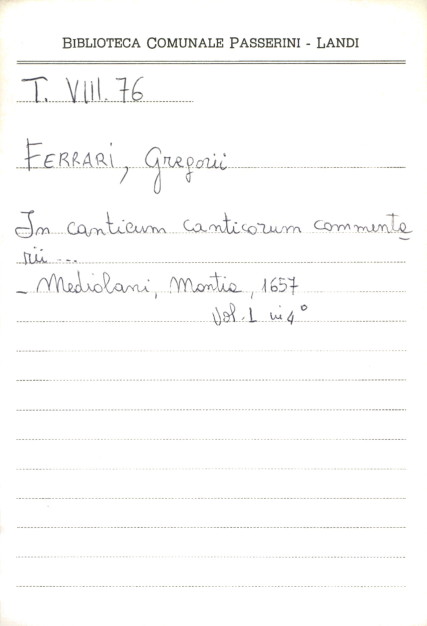 BIBLIOTECA COMUNALE PASSERINI - LANDI
T. VIII. 76
FERRARI, Gregorii
In canticum canticorum commenta
rii ...
- Mediolani, Montia, 1657
Vol. 1 in 4°